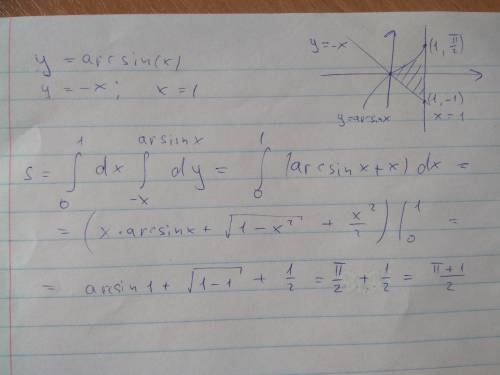 y = arcsin(x)
y = -x; x = 1
y=-x
(1, π/2)
(1, -1)
x = 1
y=arsinx
S = ∫₀¹ dx ∫₋ₓ^(arsinx) dy = ∫₀¹ (arcsinx + x) dx =
= (x·arcsinx + √(1-x²) + x²/2) |₀¹ =
= arcsin1 + √(1-1) + 1/2 = π/2 + 1/2 = (π+1)/2